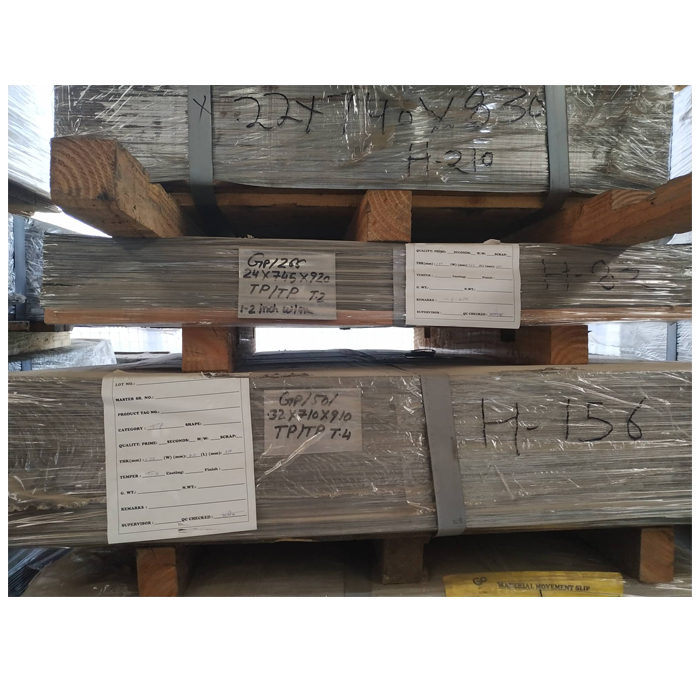 X .22X740X830
H-210
GP/265
24X745X920
TP/TP T-2
1-2 inch
QUALITY: PRIME: SECONDS: W/W: SCRAP:
THK(mm): (W) (mm): (L) (mm):
TEMPER: Coating: Finish:
G. WT: N.WT:
REMARKS :
SUPERVISOR : QC CHECKED:
LOT NO.:
MASTER SR. NO.:
PRODUCT TAG NO.:
CATEGORY : SHAPE:
QUALITY: PRIME: SECONDS: W/W: SCRAP:
THK(mm) : (W) (mm): (L) (mm):
TEMPER : Coating: Finish :
G. WT: N.WT:
REMARKS :
SUPERVISOR : QC CHECKED:
GP/501
.32X710X910
TP/TP T-4
H-156
GP MATERIAL MOVEMENT SLIP